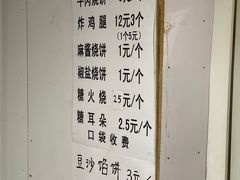 牛肉烧饼
炸鸡腿 12元3个
(1个5元)
麻酱烧饼 1元/个
椒盐烧饼 1元/个
糖火烧 2.5元/个
糖耳朵 2.5元/个
口袋收费
豆沙馅饼 3元/